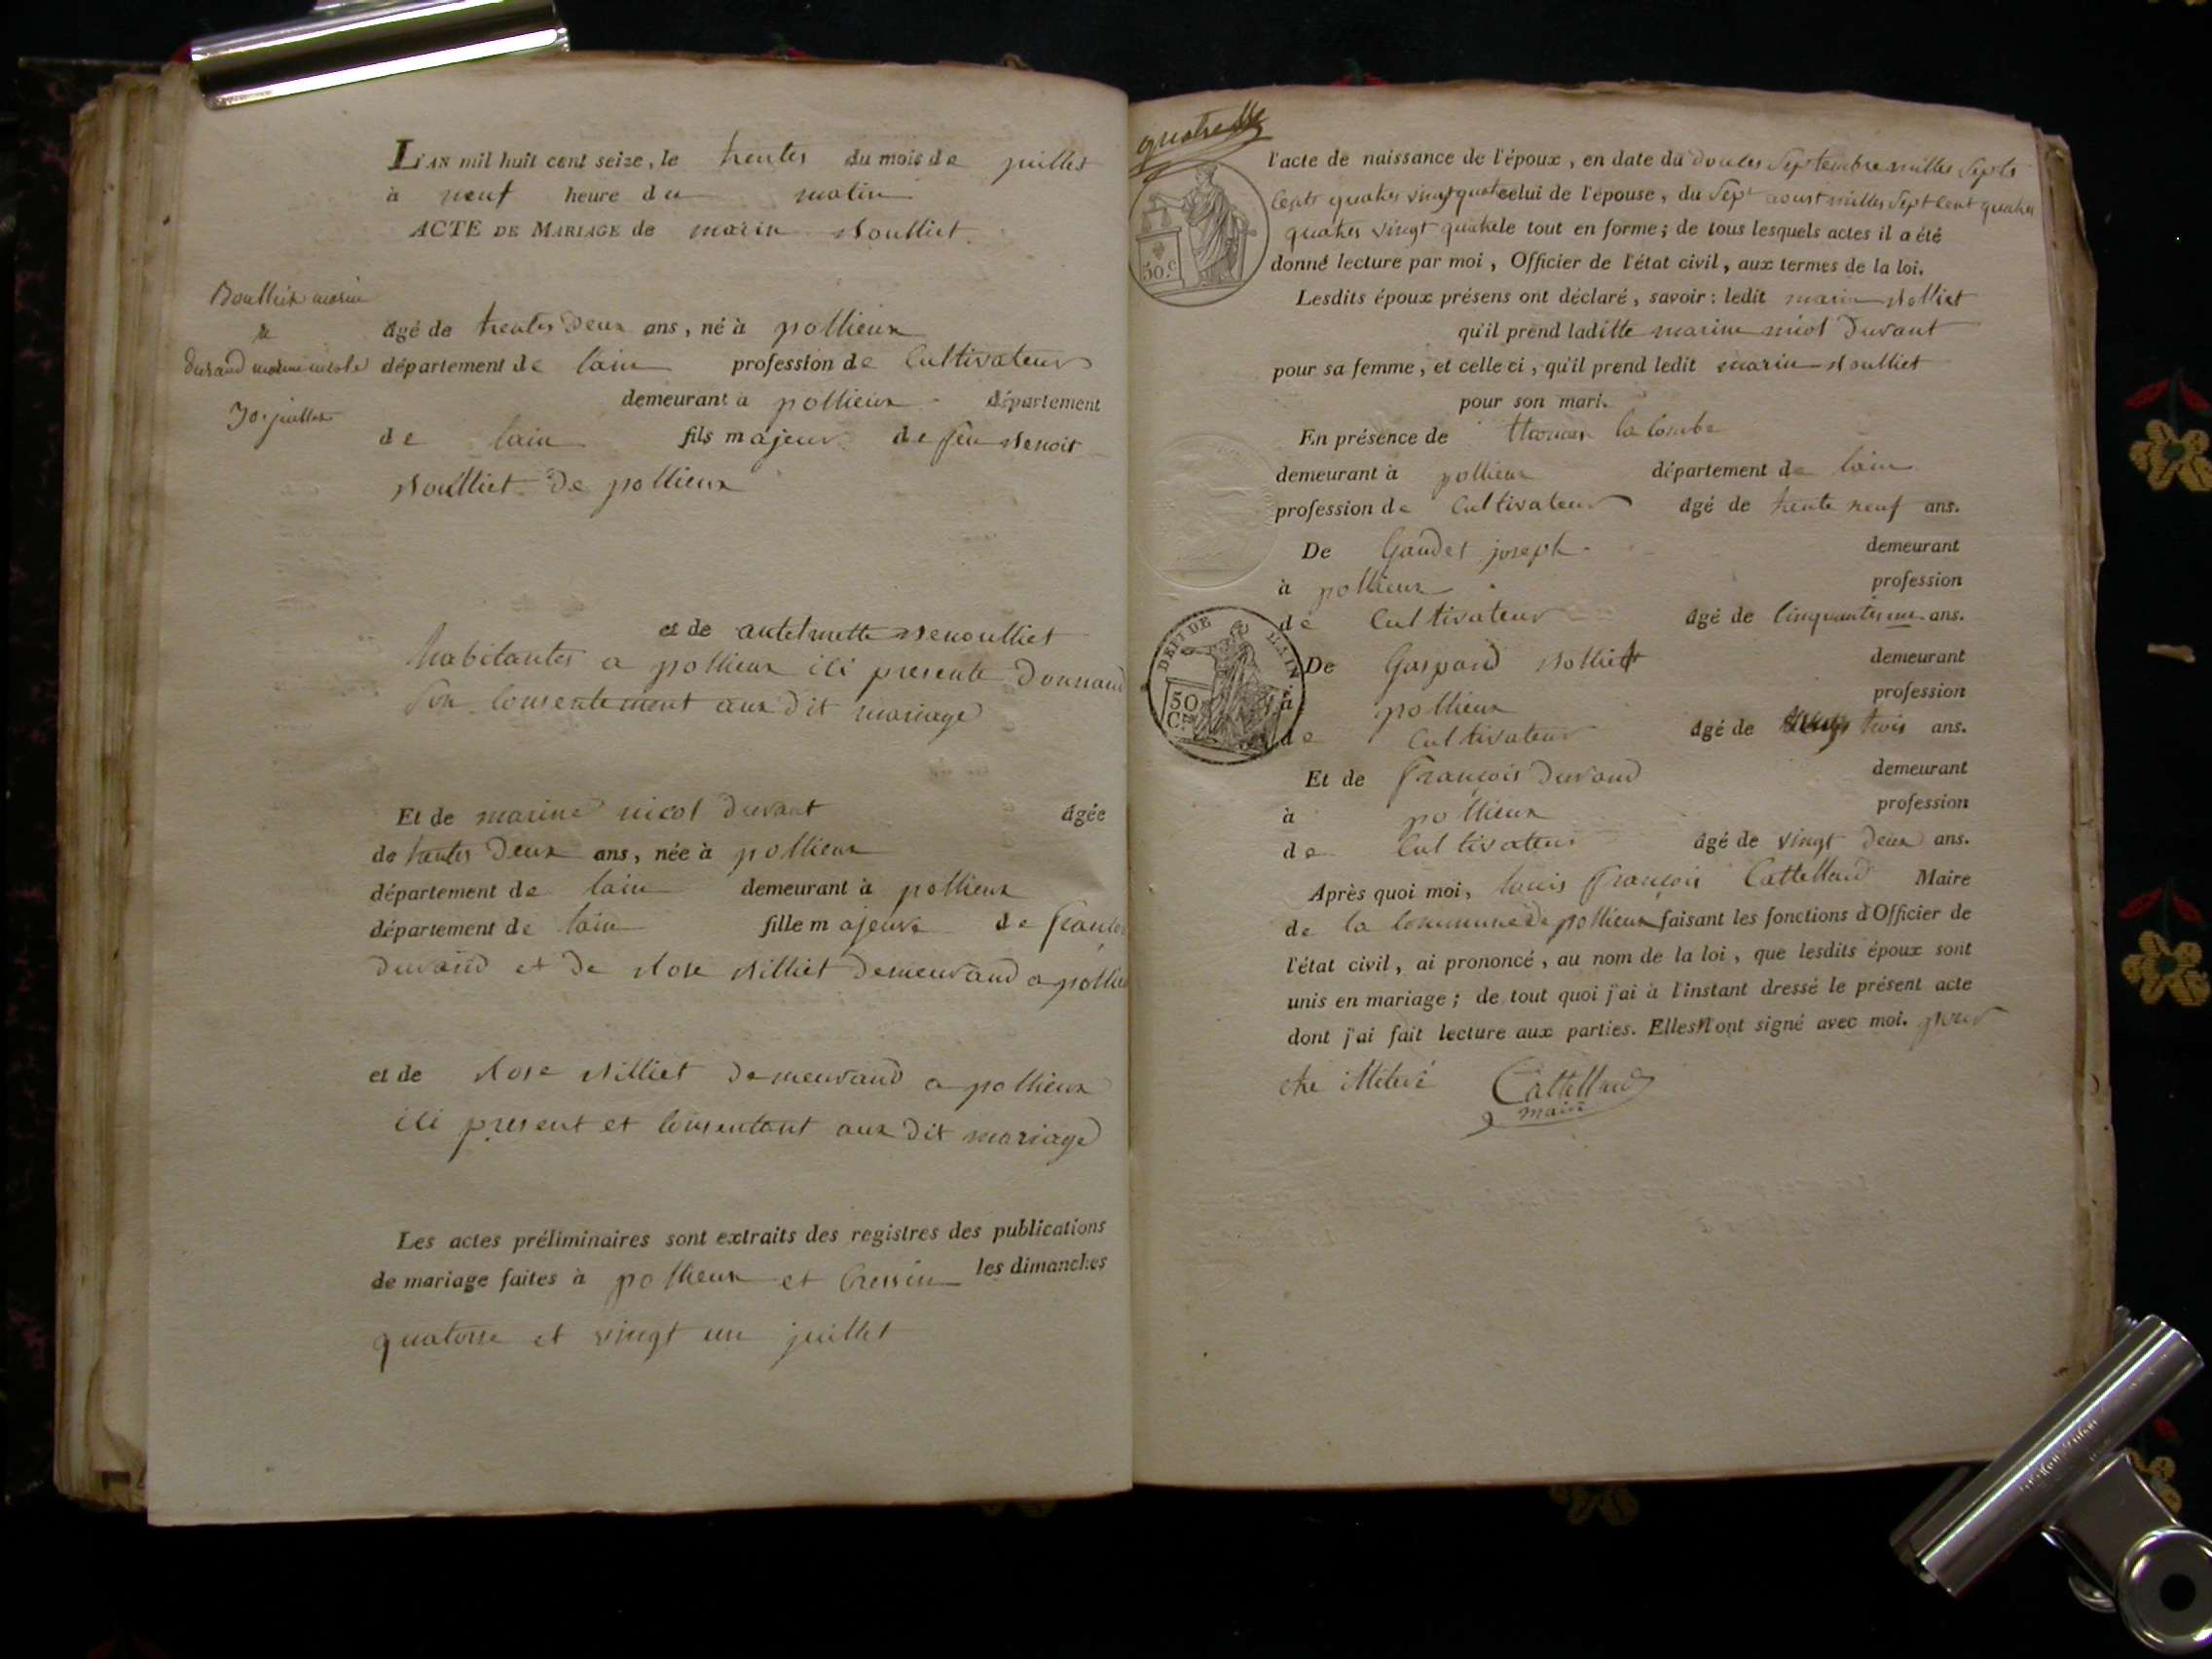 L'AN mil huit cent seize, le trentes du mois de juillet
à neuf heure du matin
ACTE DE MARIAGE de marin Boulliet
Boulliet marin
&
durand marine nicole
30 juillet
âgé de trentes deux ans, né à pollieux
département de lain profession de Cultivateur
demeurant à pollieux département
de lain fils majeur de feu Benoit
Boulliet de pollieux
et de antelmette
habitantes a pollieux ici presente Donnand
son Consentement aux dit mariage
Et de marine nicol Durant âgée
de trentes Deux ans, née à pollieux
département de lain demeurant à pollieux
département de lain fille majeure de françoi
Durand et De Rose Billiet Demeurand a pollieu
et de Rose Billiet Demeurand a pollieux
ici present et Consentant aux dit mariage
Les actes préliminaires sont extraits des registres des publications
de mariage faites à pollieux et Cressin les dimanches
quatorse et vingt un juillet
l'acte de naissance de l'époux, en date du douzes Septembre milles Septs
Cents quatres vingt quatre celui de l'épouse, du Sept aoust milles Sept Cent quatres
quatres vingt quatre le tout en forme; de tous lesquels actes il a été
donné lecture par moi, Officier de l'état civil, aux termes de la loi.
50.c
Lesdits époux présens ont déclaré, savoir: ledit marin Bolliet
qu'il prend laditte marine nicol Durant
pour sa femme, et celle ci, qu'il prend ledit marin Boulliet
pour son mari.
En présence de thomas la Combe
demeurant à pollieux département de lain
profession de Cultivateur âgé de trente neuf ans.
De Gaudet joseph demeurant
à pollieux profession
de Cultivateur âgé de Cinquantes un ans.
DEPT DE L'AIN.
50 C.
De Gaspard Bolliet demeurant
à pollieux profession
de Cultivateur âgé de trois ans.
Et de François Durand demeurant
à pollieux profession
de Cultivateur âgé de vingt Deux ans.
Après quoi moi, Louis François Cattelland Maire
de la Commune De pollieux faisant les fonctions d'Officier de
l'état civil, ai prononcé, au nom de la loi, que lesdits époux sont
unis en mariage; de tout quoi j'ai à l'instant dressé le présent acte
dont j'ai fait lecture aux parties. Elles n'ont signé avec moi. pour
Cattelland
maire